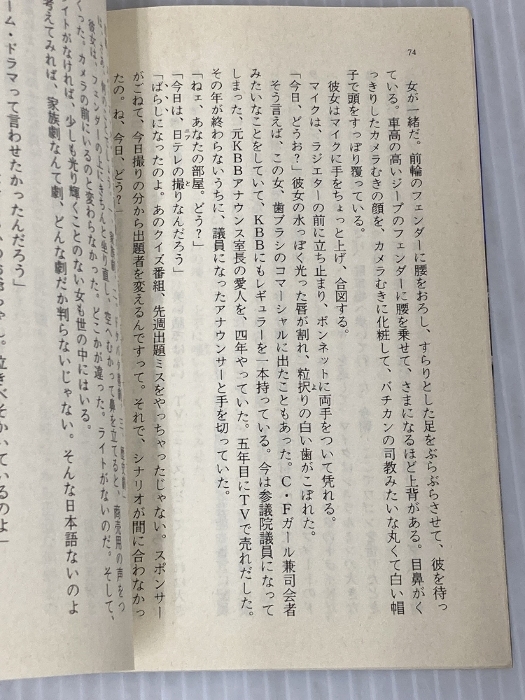 74
女が一緒だ。前輪のフェンダーに腰をおろし、すらりとした足をぶらぶらさせて、彼を待っ
ている。車高の高いジープのフェンダーに腰を乗せて、さまになるほど上背がある。目鼻がく
っきりしたカメラむきの顔を、カメラむきに化粧して、バチカンの司教みたいな丸くて白い帽
子で頭をすっぽり覆っている。
彼女はマイクに手をちょっと上げ、合図する。
マイクは、ラジエターの前に立ち止まり、ボンネットに両手をついて凭れる。
「今日、どうお?」彼女の水っぽく光った唇が割れ、粒択りの白い歯がこぼれた。
そう言えば、この女、歯ブラシのコマーシャルに出たこともあった。C・Fガール兼司会者
みたいなことをしていて、KBBにもレギュラーを一本持っている。今は参議院議員になって
しまった、元KBBアナウンス室長の愛人を、四年やっていた。五年目にTVで売れだした。
その年が終わらないうちに、議員になったアナウンサーと手を切っていた。
「ねェ、あなたの部屋。どう?」
「今日は、日テレの撮りなんだろう」
「ばらしになったのよ。あのクイズ番組、先週出題ミスをやっちゃったじゃない。スポンサー
がごねて、今日撮りの分から出題者を変えるんですって。それで、シナリオが間に合わなかっ
たの。ね、今日、どう?」
彼女は、フェンダーの上にきちんと坐り直し、空へむかって鼻を立てると、商売用の声をつ
くった。カメラの前にいるのと変わらなかった。どこかが違った。ライトがないのだ。そして、
ライトがなければ、少しも光り輝くことのない女も世の中にはいる。
考えてみれば、家族劇なんて劇、どんな劇だか判らないじゃない。そんな日本語ないのよ
ーム・ドラマって言わせたかったんだろう」
泣きべそかいているのよ」